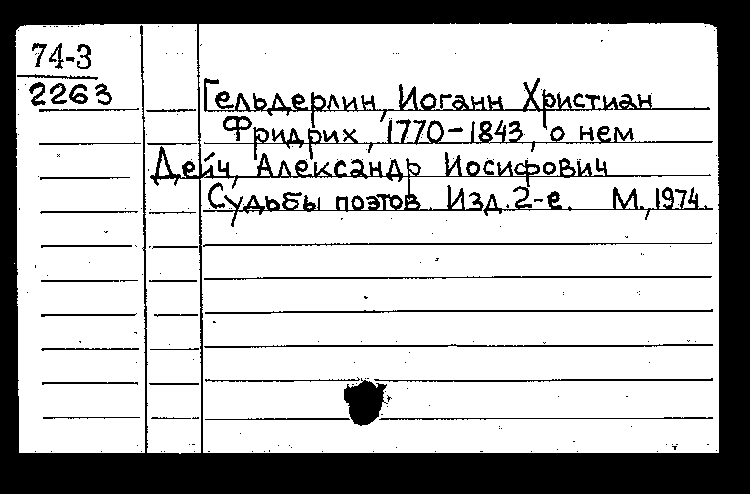 74-3
2263
Гельдерлин, Иоганн Христиан
Фридрих, 1770-1843, о нем
Дейч, Александр Иосифович
Судьбы поэтов. Изд. 2-е. М., 1974.